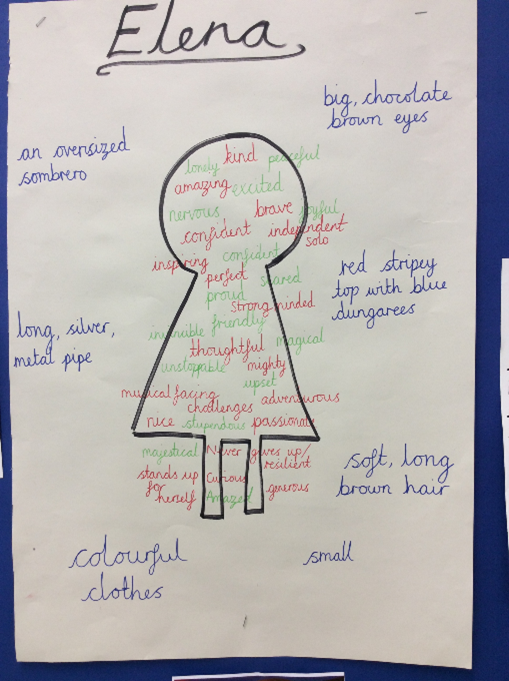 Elena
big, chocolate
brown eyes
an oversized
sombrero
lonely kind peaceful
amazing excited
nervous brave joyful
confident independent
solo
inspiring confident
perfect scared
proud strong minded
invincible friendly
thoughtful magical
unstoppable mighty
upset
musical facing adventurous
challenges
nice stupendous passionate
majestical Never gives up/
resilient
stands up Curious
for
herself Amazed generous
red stripey
top with blue
dungarees
long, silver,
metal pipe
soft, long
brown hair
colourful
clothes
small